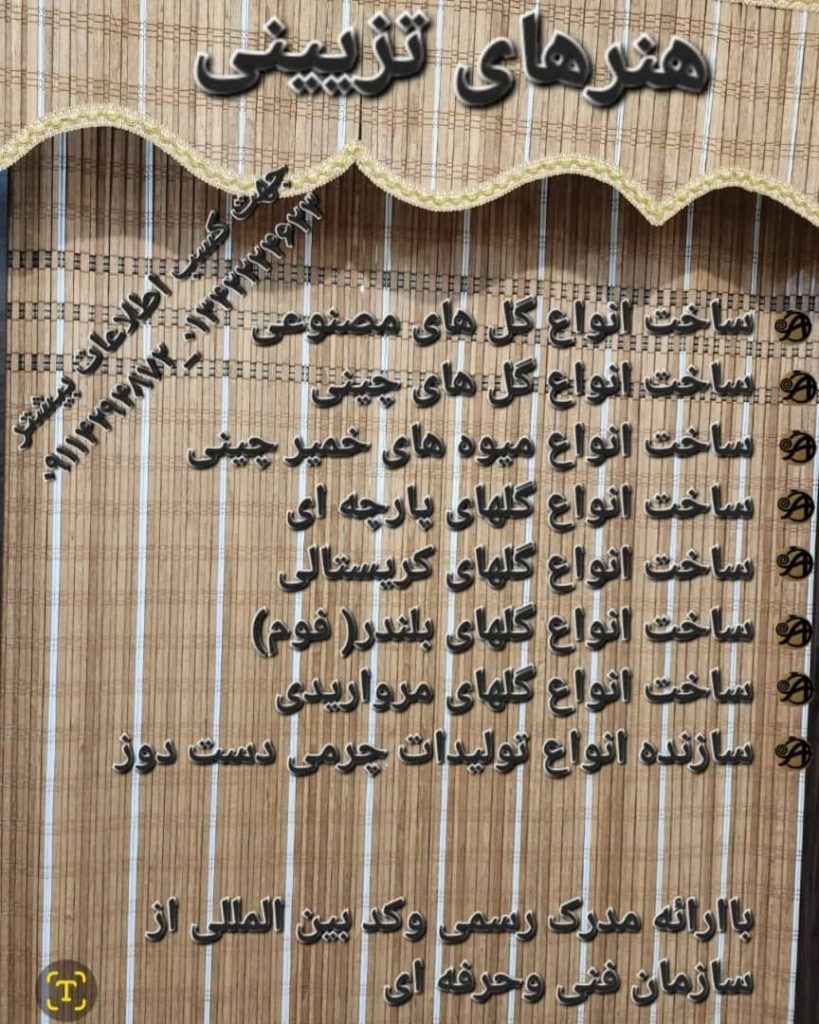 هنرهای تزیینی
جهت کسب اطلاعات بیشتر
۰۹۱۱۲۲۹۲۸۷۲_۰۱۳۴۲۴۲۴۶۲۳
ساخت انواع گل های مصنوعی
ساخت انواع گل های چینی
ساخت انواع میوه های خمیر چینی
ساخت انواع گلهای پارچه ای
ساخت انواع گلهای کریستالی
ساخت انواع گلهای بلندر( فوم)
ساخت انواع گلهای مرواریدی
سازنده انواع تولیدات چرمی دست دوز
باارائه مدرک رسمی وکد بین المللی از
سازمان فنی وحرفه ای